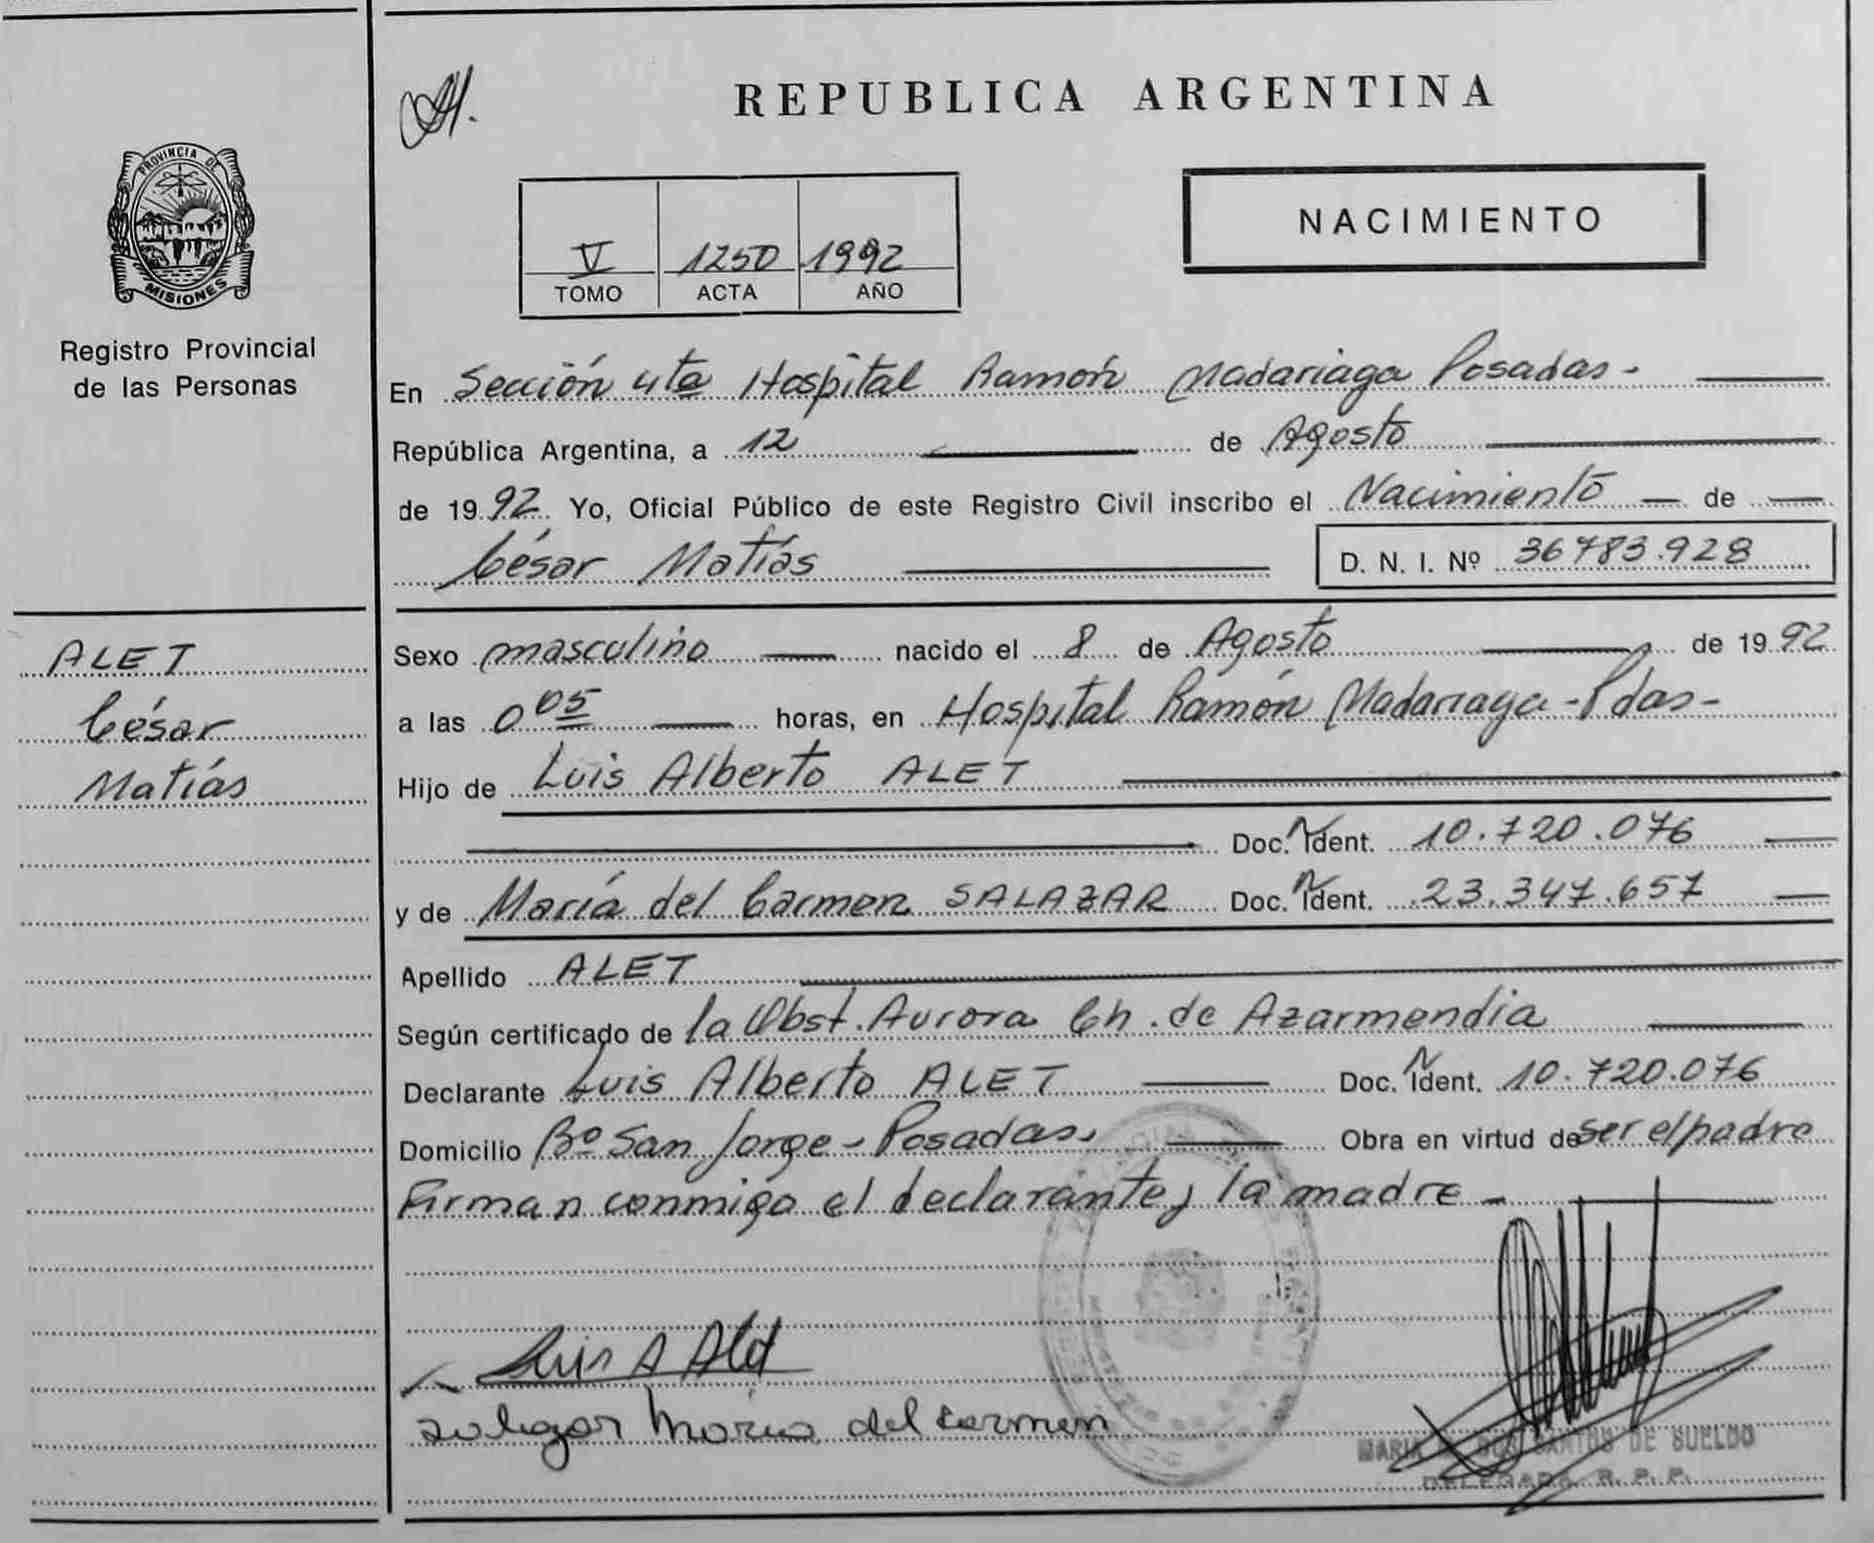 PROVINCIA DE
MISIONES
Registro Provincial
de las Personas
ALET
César
Matías
REPUBLICA ARGENTINA
V 1250 1992
TOMO ACTA AÑO
NACIMIENTO
En Sección 4ta Hospital Ramón Madariaga Posadas-
República Argentina, a 12 de Agosto
de 1992 Yo, Oficial Público de este Registro Civil inscribo el Nacimiento de
César Matías D. N. I. Nº 36783.928
Sexo masculino nacido el 8 de Agosto de 1992
a las 0 05 horas, en Hospital Ramón Madariaga-Pdas-
Hijo de Luis Alberto ALET
Doc. N Ident. 10.720.076
y de María del Carmen SALAZAR Doc. N Ident. 23.347.657
Apellido ALET
Según certificado de la Obst. Aurora Ch. de Azarmendia
Declarante Luis Alberto ALET Doc. N Ident. 10.720.076
Domicilio Bº San Jorge - Posadas. Obra en virtud de ser el padre
Firman conmigo el declarante y la madre -
Luis A Alet
Salazar María del Carmen
MARIA DOS SANTOS DE SUELDO
DELEGADA R. P. P.